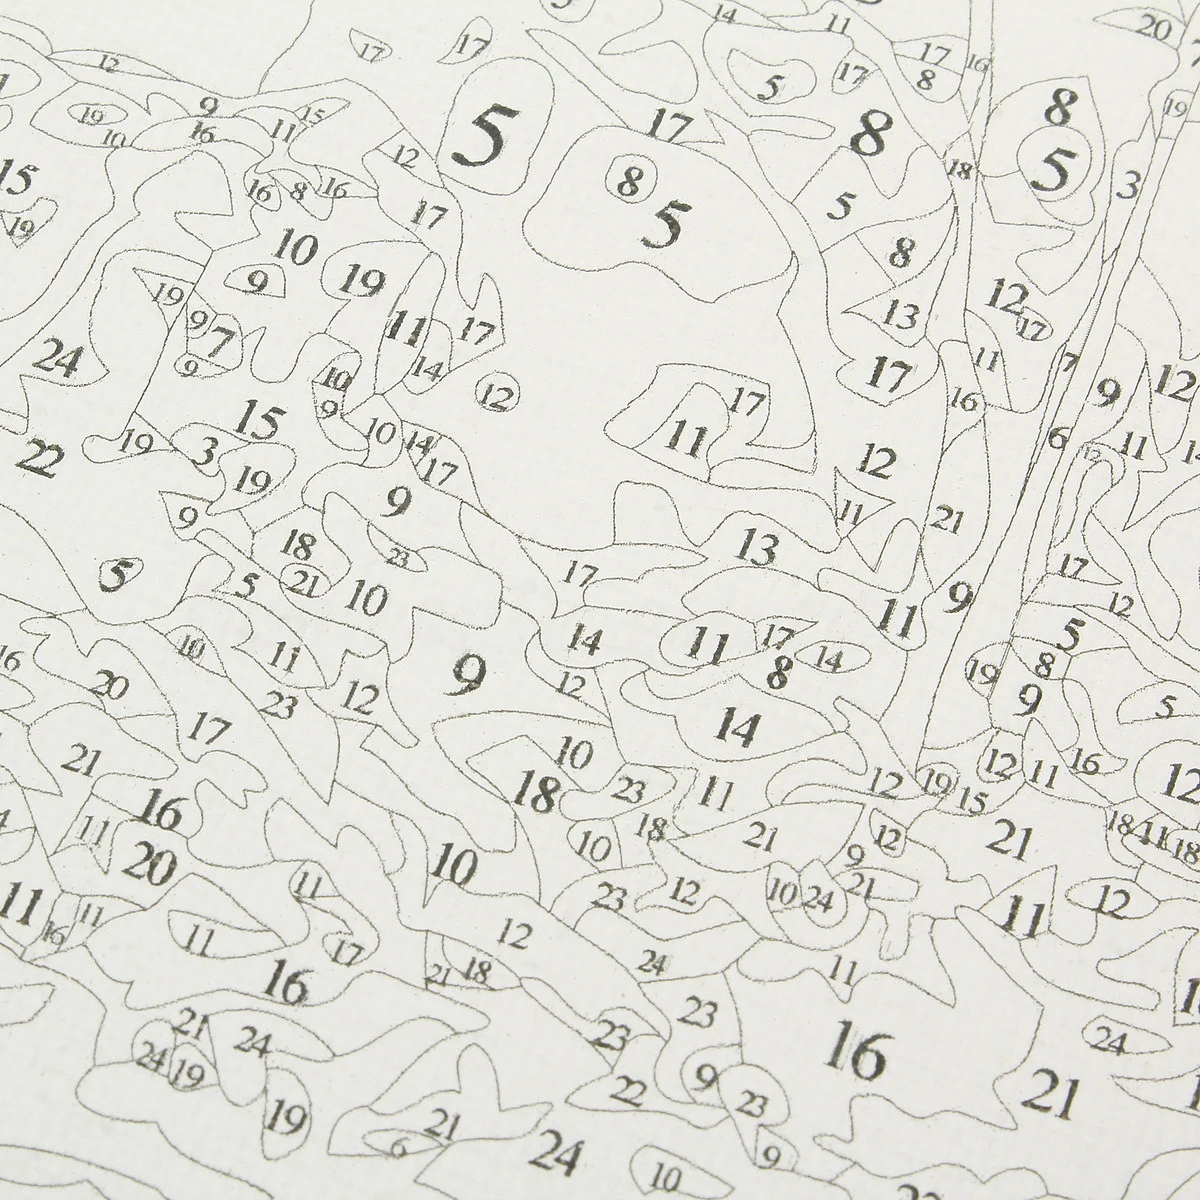 14 11 20
17 17 17 16
12 5 17 8
9 15 19 8 19
19 10 16 11 5 17 8
15 12 8 18 5 3
16 8 16 17 5 5
19 10 8
9 19 12
19 9 11 17 13 17
7 14 11 7
24 9 10 12 17 17 12
15 9 10 14 11 16 9
19 3 17 12 6 11
22 19 9 11
9 21
18 23 13
5 5 21 10 17 17
9 12
11 5
10 11 14 11 17 14 8
16 20 23 12 9 12 8 19 9
17 14 5
21 10
16 18 23 11 12 19 12 11 16 12
11 18 21 15 21
20 10 10 9 12
11 11 23 12 10 24 21 11 12
11 16 11 17 12 24 11
16 21 18
21 24 23 23 16 24
24 19 22 9 21
19 21 23
6 24 10 9